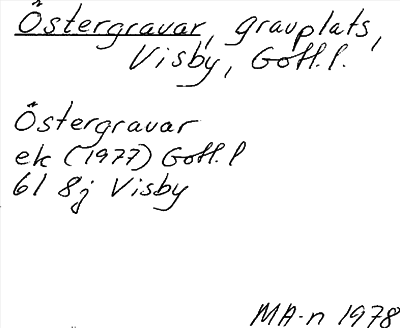 Östergravar, gravplats,
Visby, Gotl. l.
Östergravar
ek (1977) Gotl. l
6I 8j Visby
MA-n 1978